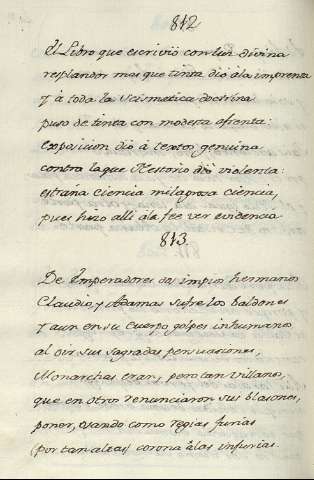 812
El Libro que escrivió con luz divina
resplandor mas que tinta dió á la imprenta
y á toda la Scismatica doctrina
puso de tinta con modesta afrenta:
exposicion dió á textos genuina
contra la que Nestorio dió violenta:
estraña ciencia milagrosa ciencia,
pues hizo allí á la fee ver evidencia
813.
De Emperadores dos impios hermanos
Claudio, y Adamas sufre los baldones
y aun en su Cuerpo golpes inhumanos
al oir sus sagradas persuaciones,
Monarchas eran, pero tan villanos,
que en otros renunciaron sus blasones,
poner, usando como regias furias
(por tan aleas) corona á las injurias.